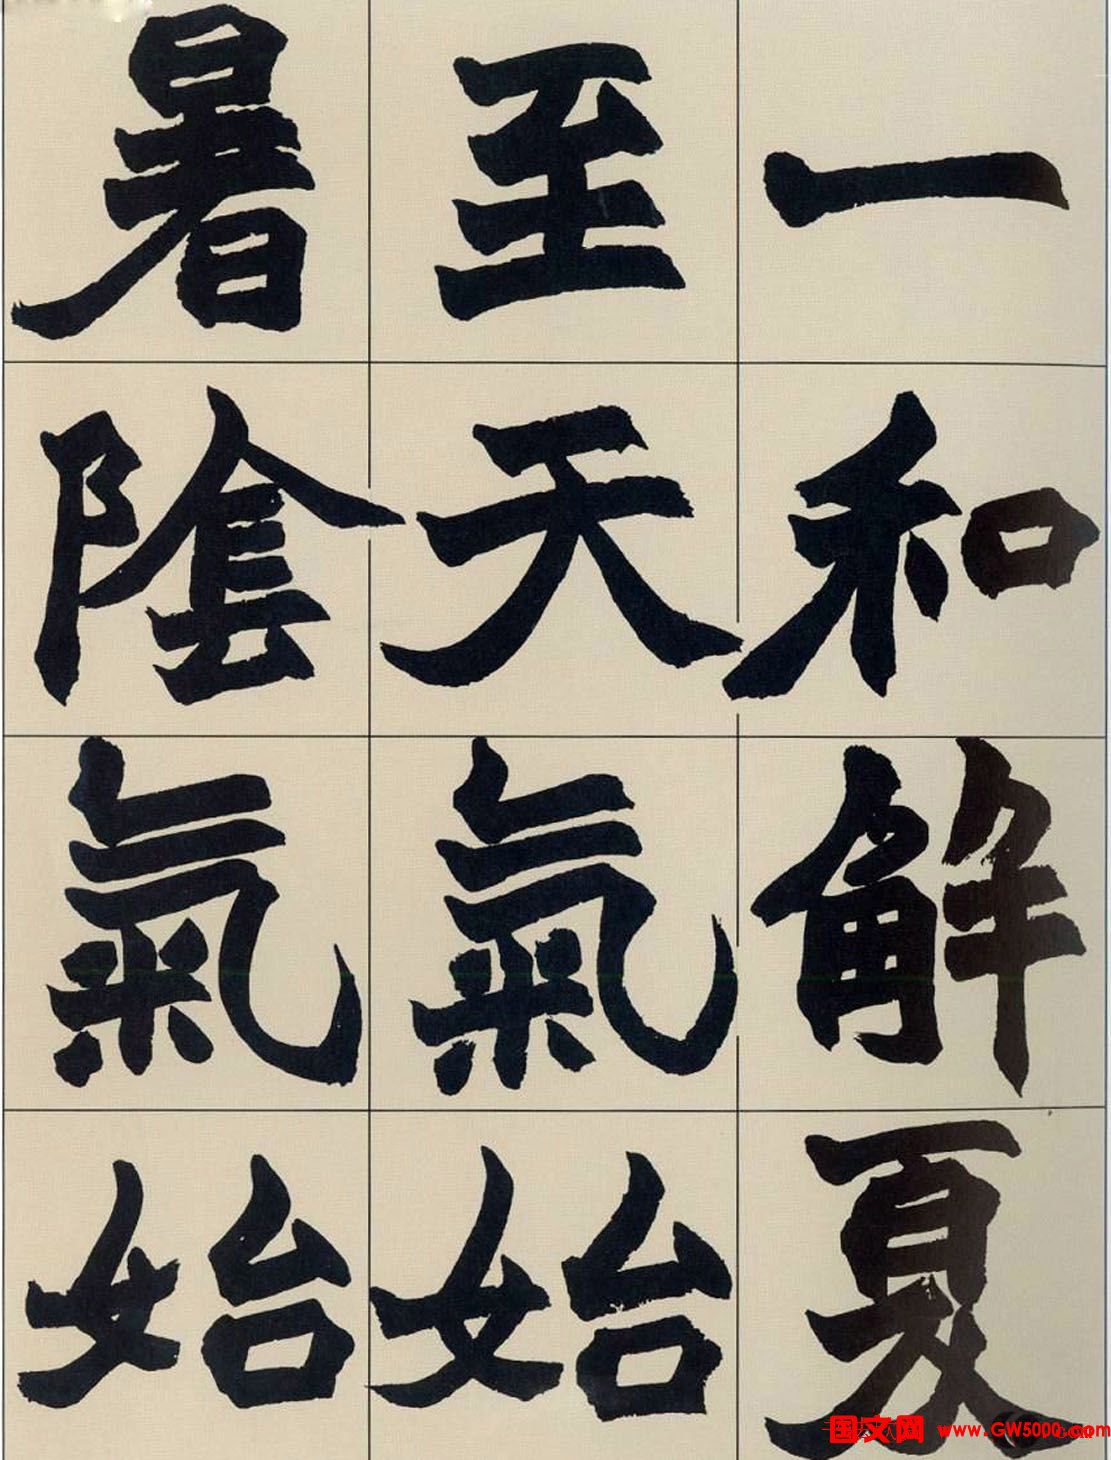 一和解夏
至天氣始
暑陰氣始
国文网 www.GW5000.com